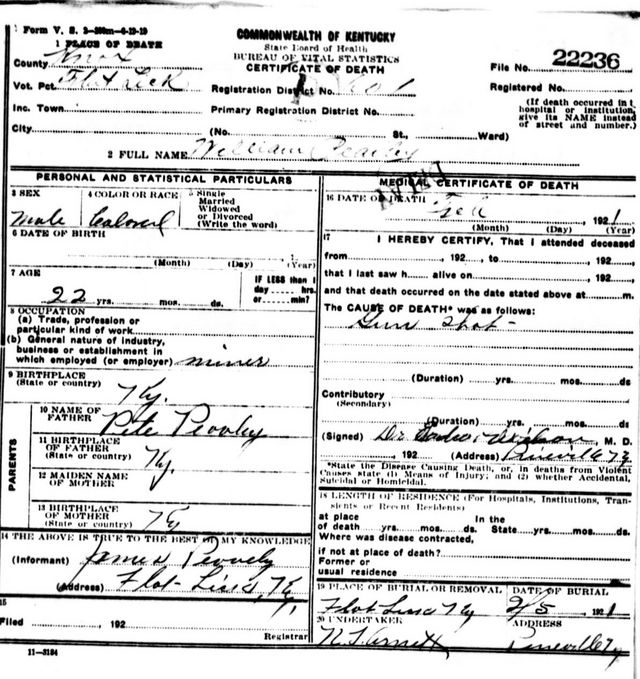 Form V. S. 2-300m-6-19-19
COMMONWEALTH OF KENTUCKY
State Board of Health
BUREAU OF VITAL STATISTICS
CERTIFICATE OF DEATH
1 PLACE OF DEATH
County Knox
Vot. Pct. Flat Lick
Inc. Town
City
Registration District No.
Primary Registration District No.
(No. St., Ward)
File No. 22236
Registered No.
(If death occurred in
hospital or institution,
give its NAME instead
of street and number.)
2 FULL NAME William
PERSONAL AND STATISTICAL PARTICULARS
3 SEX
Male
4 COLOR OR RACE
Colored
5 Single
Married
Widowed
or Divorced
(Write the word)
6 DATE OF BIRTH
(Month) (Day) (Year)
7 AGE
22 yrs. mos. ds.
IF LESS than 1
day hrs.
or min?
8 OCCUPATION
(a) Trade, profession or
particular kind of work
(b) General nature of industry,
business or establishment in
which employed (or employer) miner
9 BIRTHPLACE
(State or country)
Ky.
PARENTS
10 NAME OF
FATHER
Pete
11 BIRTHPLACE
OF FATHER
(State or country)
Ky.
12 MAIDEN NAME
OF MOTHER
13 BIRTHPLACE
OF MOTHER
(State or country)
Ky
14 THE ABOVE IS TRUE TO THE BEST OF MY KNOWLEDGE
(Informant) James
(Address) Ky.
15
Filed 192
Registrar
11-3184
MEDICAL CERTIFICATE OF DEATH
16 DATE OF DEATH
Feb 1921
(Month) (Day) (Year)
17 I HEREBY CERTIFY, That I attended deceased
from , 192 , to , 192
that I last saw h alive on , 192
and that death occurred on the date stated above at m.
The CAUSE OF DEATH* was as follows:
Gun Shot
(Duration) yrs. mos. ds
Contributory
(Secondary)
(Duration) yrs. mos. ds.
(Signed) Dr. M. D.
, 192 (Address) Pineville Ky
*State the Disease Causing Death, or, in deaths from Violent
Causes state (1) Means of Injury; and (2) whether Accidental,
Suicidal or Homicidal.
18 LENGTH OF RESIDENCE (For Hospitals, Institutions, Tran-
sients or Recent Residents)
at place In the
of death yrs. mos. ds. State yrs. mos. ds.
Where was disease contracted,
if not at place of death?
Former or
usual residence
19 PLACE OF BURIAL OR REMOVAL
Ky
DATE OF BURIAL
2/5 1921
20 UNDERTAKER
ADDRESS
Pineville Ky